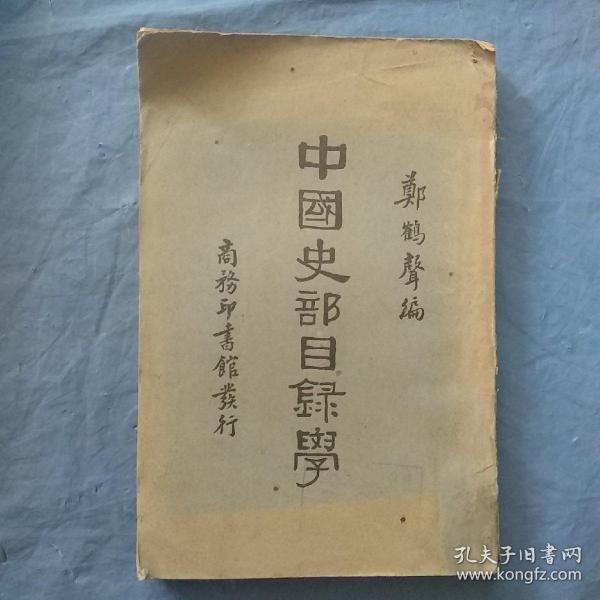 鄭鶴聲編
中國史部目録學
商務印書館發行
孔夫子旧書网
www.kongfz.com